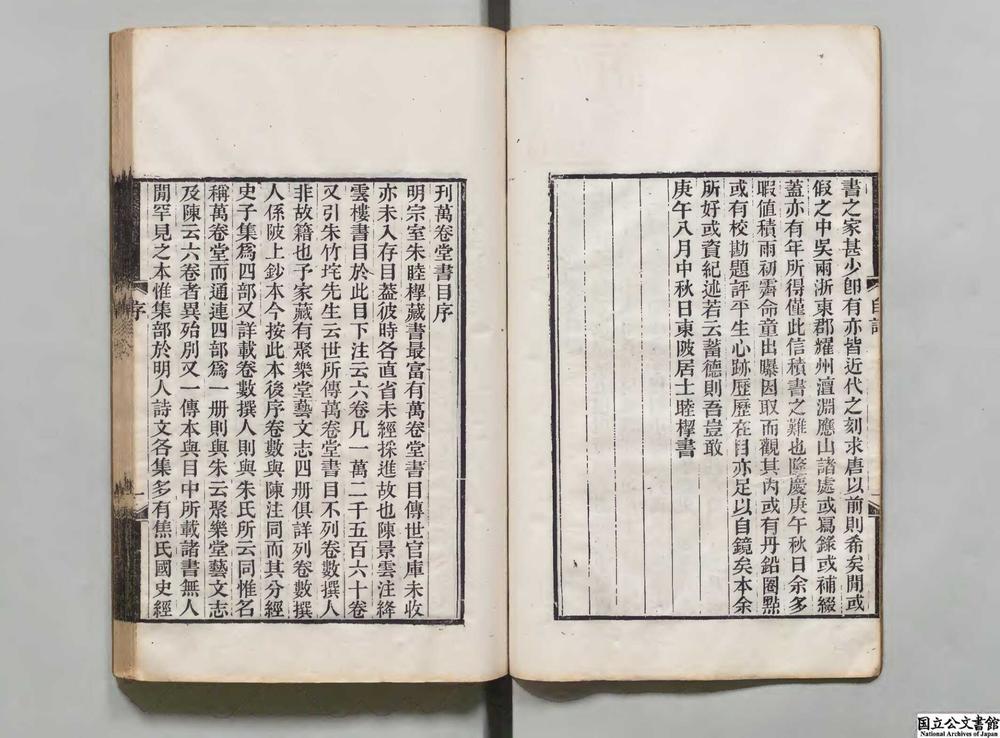 書之家甚少卽有亦皆近代之刻求唐以前則希矣閒或
假之中吳兩浙東郡耀州澶淵應山諸處或寫錄或補綴
蓋亦有年所得僅此信積書之難也隆慶庚午秋日余多
暇值積雨初霽命童出曝因取而觀其內或有丹鉛圈點
或有校勘題評平生心跡歷歷在目亦足以自鏡矣本余
所好或資紀述若云蓄德則吾豈敢
庚午八月中秋日東陂居士睦㮮書
自記
刊萬卷堂書目序
明宗室朱睦㮮藏書最富有萬卷堂書目傳世官庫未收
亦未入存目蓋彼時各直省未經採進故也陳景雲注絳
雲樓書目於此目下注云六卷凡一萬二千五百六十卷
又引朱竹垞先生云世所傳萬卷堂書目不列卷數撰人
非故籍也予家藏有聚樂堂藝文志四册俱詳列卷數撰
人係陂上鈔本今按此本後序卷數與陳注同而其分經
史子集爲四部又詳載卷數撰人則與朱氏所云同惟名
稱萬卷堂而通連四部爲一册則與朱云聚樂堂藝文志
及陳云六卷者異殆別又一傳本與目中所載諸書無人
閒罕見之本惟集部於明人詩文各集多有焦氏國史經
序
一
国立公文書館
National Archives of Japan